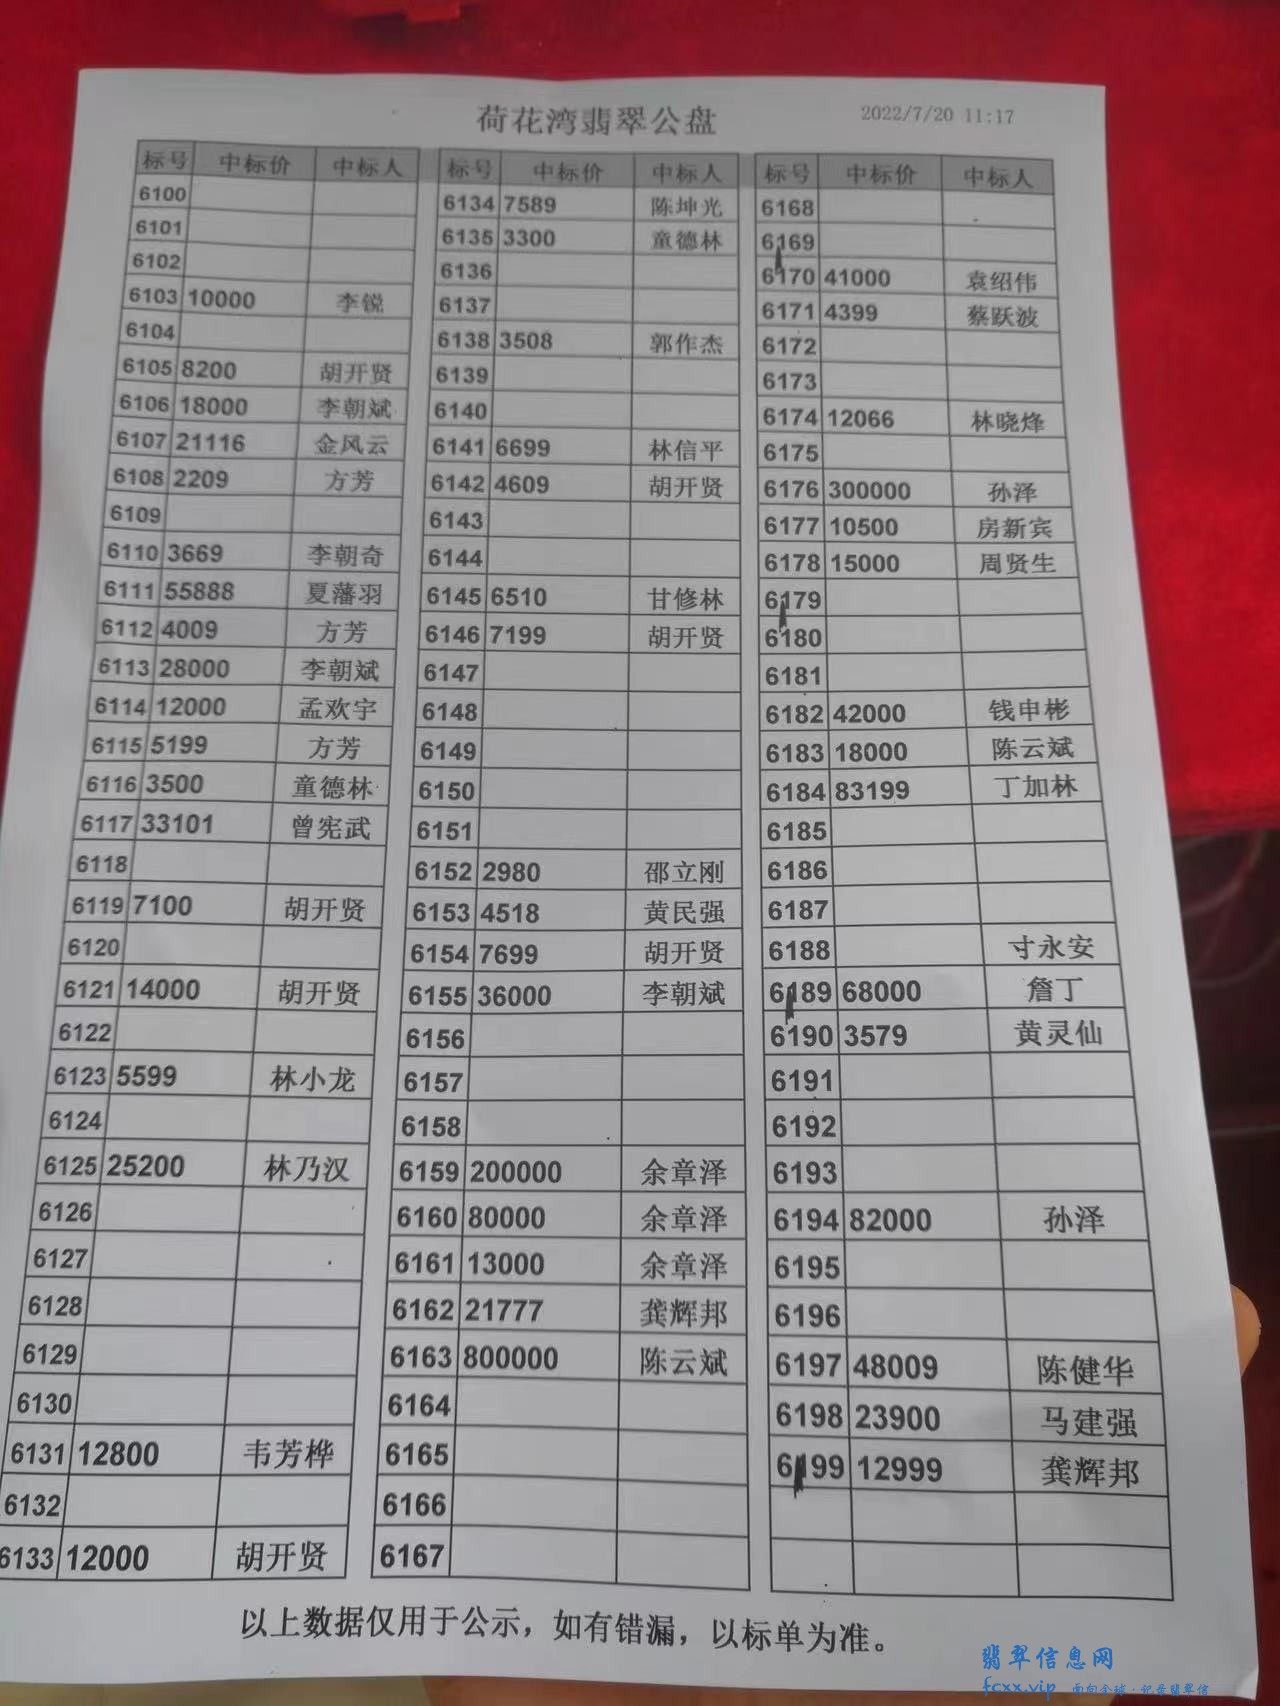 荷花湾翡翠公盘
2022/7/20 11:17
标号 中标价 中标人
6100
6101
6102
6103 10000 李锐
6104
6105 8200 胡开贤
6106 18000 李朝斌
6107 21116 金风云
6108 2209 方芳
6109
6110 3669 李朝奇
6111 55888 夏藩羽
6112 4009 方芳
6113 28000 李朝斌
6114 12000 孟欢宇
6115 5199 方芳
6116 3500 童德林
6117 33101 曾宪武
6118
6119 7100 胡开贤
6120
6121 14000 胡开贤
6122
6123 5599 林小龙
6124
6125 25200 林乃汉
6126
6127
6128
6129
6130
6131 12800 韦芳桦
6132
6133 12000 胡开贤
标号 中标价 中标人
6134 7589 陈坤光
6135 3300 童德林
6136
6137
6138 3508 郭作杰
6139
6140
6141 6699 林信平
6142 4609 胡开贤
6143
6144
6145 6510 甘修林
6146 7199 胡开贤
6147
6148
6149
6150
6151
6152 2980 邵立刚
6153 4518 黄民强
6154 7699 胡开贤
6155 36000 李朝斌
6156
6157
6158
6159 200000 余章泽
6160 80000 余章泽
6161 13000 余章泽
6162 21777 龚辉邦
6163 800000 陈云斌
6164
6165
6166
6167
标号 中标价 中标人
6168
6169
6170 41000 袁绍伟
6171 4399 蔡跃波
6172
6173
6174 12066 林晓烽
6175
6176 300000 孙泽
6177 10500 房新宾
6178 15000 周贤生
6179
6180
6181
6182 42000 钱申彬
6183 18000 陈云斌
6184 83199 丁加林
6185
6186
6187
6188 寸永安
6189 68000 詹丁
6190 3579 黄灵仙
6191
6192
6193
6194 82000 孙泽
6195
6196
6197 48009 陈健华
6198 23900 马建强
6199 12999 龚辉邦
以上数据仅用于公示，如有错漏，以标单为准。
翡翠信息网
fcxx.vip 面向全城·记录翡翠信